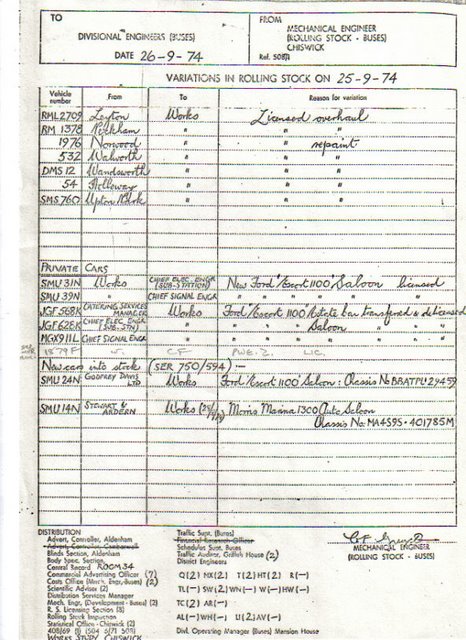 TO
DIVISIONAL ENGINEERS (BUSES)
DATE 26-9-74
FROM
MECHANICAL ENGINEER
(ROLLING STOCK - BUSES)
CHISWICK
Ref. 508
VARIATIONS IN ROLLING STOCK ON 25-9-74
Vehicle number From To Reason for variation
RML2709 Leyton Works Licensed overhaul
RM 1378 Peckham " " "
1976 Norwood " " repaint
532 Walworth " " "
DMS 12 Wandsworth " " "
54 Holloway " " "
SMS 760 Upton Park " " "
PRIVATE CARS
SMU 31N Works CHIEF ELEC. ENGR (SUB-STATION) New Ford "Escort 1100" Saloon licensed
SMU 39N " CHIEF SIGNAL ENGR " " " " "
JGF 568K CATERING SERVICES MANAGER Works Ford "Escort 1100" Estate car transferred & delicensed
JGF 628K CHIEF ELEC. ENGR (SUB-STN) " " " Saloon " "
MGX 911L CHIEF SIGNAL ENGR " " " " " "
1879F CF LIC.
New cars into stock (SER 750/594) :-
SMU 24N GODFREY DAVIS LTD Works Ford "Escort 1100" Saloon : Chassis No BBATPU 29459
SMU 14N STEWART & ARDERN Works Morris Marina 1300 Auto Saloon
Chassis No: MA4S9S - 401785M
DISTRIBUTION
Advert. Controller, Aldenham
Advert. Controller, Camberwell
Blinds Section, Aldenham
Body Spec. Section
Central Record ROOM 34
Commercial Advertising Officer (7)
Costs Office (Mech. Engr. Buses) (2)
Scientific Adviser (2)
Distribution Services Manager
Mech. Engr. (Development - Buses) (2)
R. S. Licensing (3)
Rolling Stock Inspection
Statistical Office - Chiswick (2)
408/69 (504 6/71 508)
WORKS STUDY CHISWICK
Traffic Supt. (Buses)
Financial Research Officer
Schedules Supt. Buses
Traffic Audit, Griffith House (2)
District Engineers
Q(2) NX(2) T(2) HT(2) R(—)
TL(—) SW(2) WN(—) W(—) HW(—)
TC(2) AR(—)
AL(—) WH(—) U(2) AV(—)
Divl. Operating Manager (Buses) Mansion House
MECHANICAL ENGINEER
(ROLLING STOCK - BUSES)